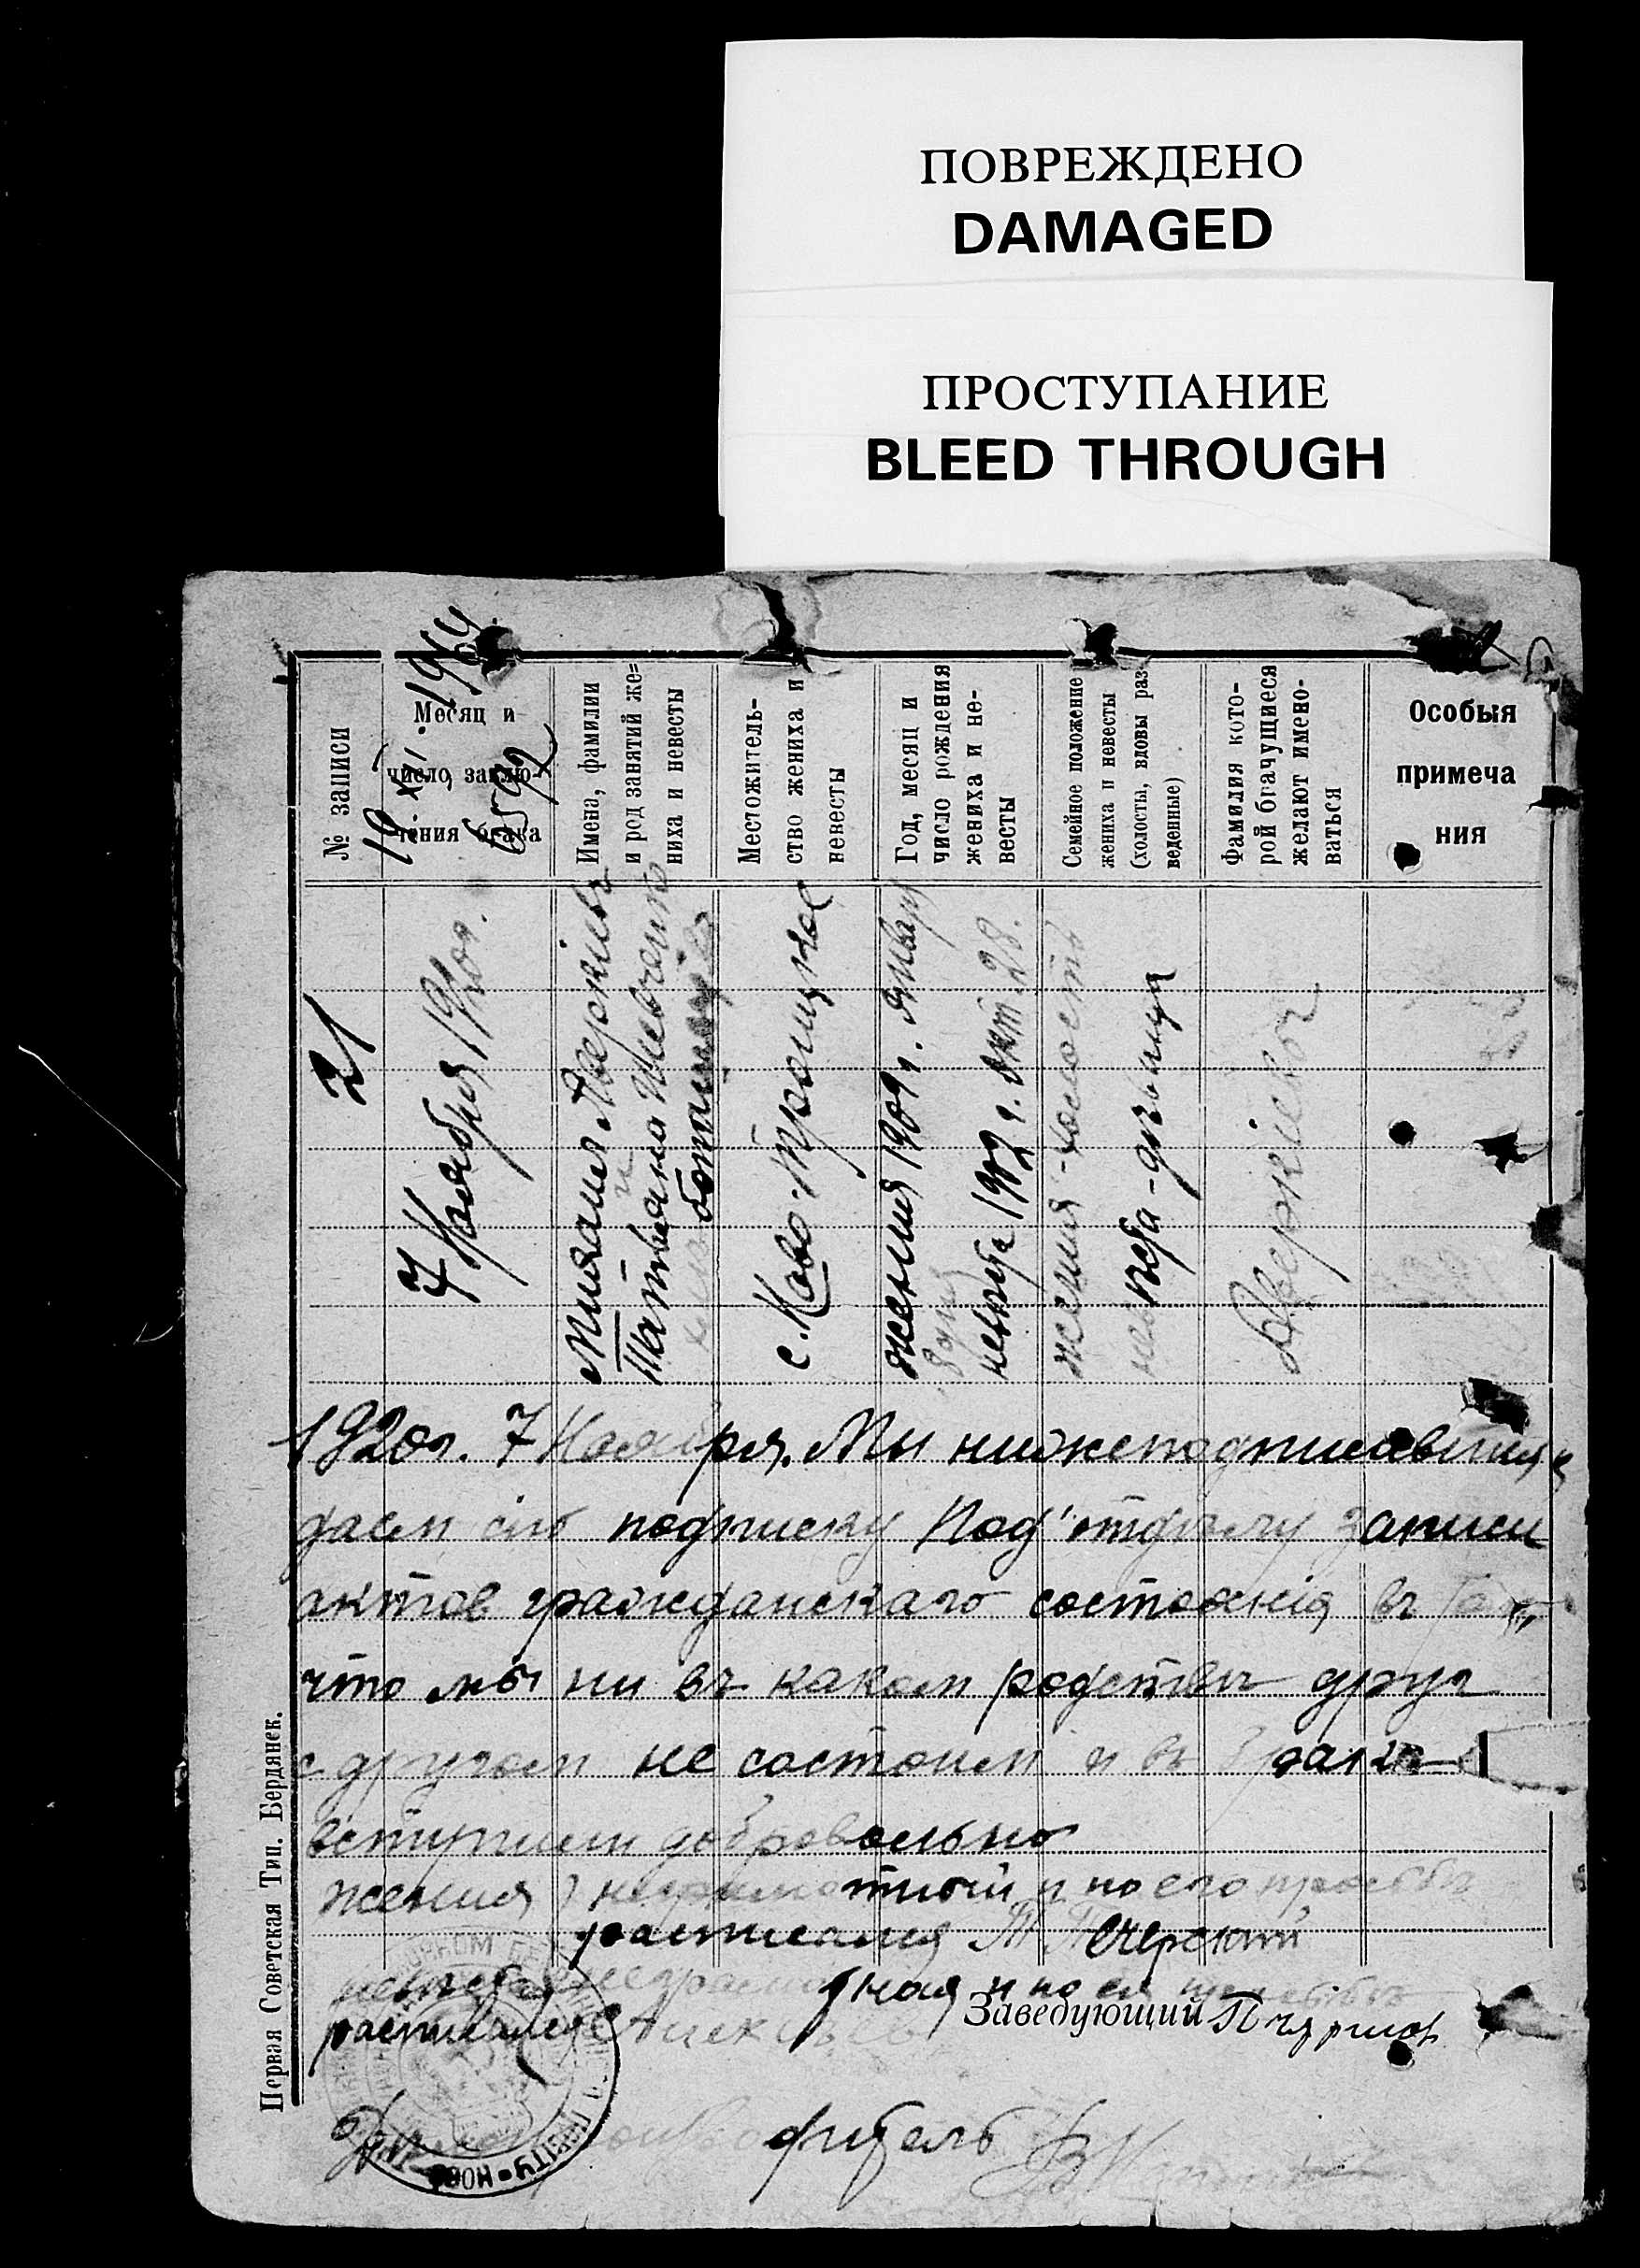 ПОВРЕЖДЕНО
DAMAGED
ПРОСТУПАНИЕ
BLEED THROUGH
№ записи
Месяц и
число заклю-
чения брака
Имена, фамилии
и род занятий же=
ниха и невесты
Местожитель-
ство жениха и
невесты
Год, месяц и
число рождения
жениха и не-
весты
Семейное положение
жениха и невесты
(холосты, вдовы раз
веденные)
Фамилия кото-
рой брачущиеся
желают имено-
ваться
Особыя
примеча
ния
19 XI. 1964.
21
7 Ноября 1920г.
Михаил Аверкіевъ
и
Татьяна Шевченко
с. Ново-Троицкое
жених 1901 г. Январ
невѣста 1902 г. окт 28.
жених - холостъ
невѣста - дѣвица
Аверкіевы
1920г. 7 Ноября. Мы нижеподписавшияся
даем сію подписку Под'отдѣлу записи
актов гражданскаго состоянія въ том,
что мы ни въ каком родствѣ друг
с другом не состоим и въ брак
вступили добровольно
жених неграмотный и по его просьбѣ
расписался Печерский
невѣста неграмотная и по ея просьбѣ
расписался Алексѣев
Заведующий
Делопроизводитель
Первая Советская Тип. Бердянск.